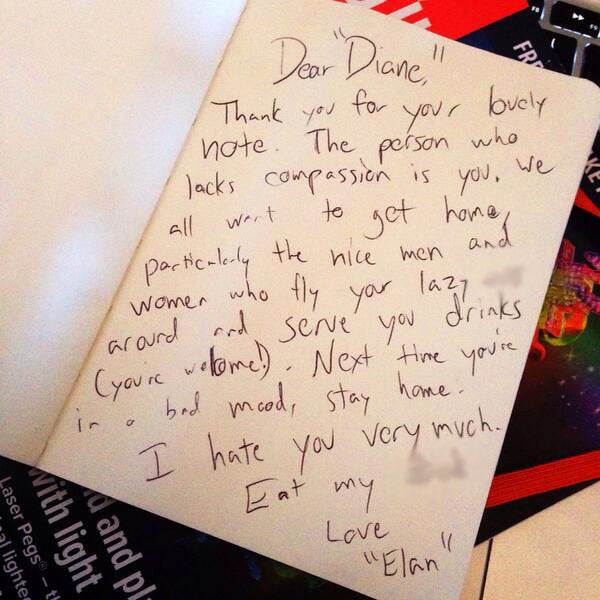 Dear "Diane,"
Thank you for your lovely
note. The person who
lacks compassion is you. We
all want to get home,
particularly the nice men and
women who fly your lazy
around and serve you drinks
(you're welcome!). Next time you're
in a bad mood, stay home.
I hate you very much.
Eat my
Love
"Elan"
FRE
KET
and pl
with light
Laser Pegs® – t